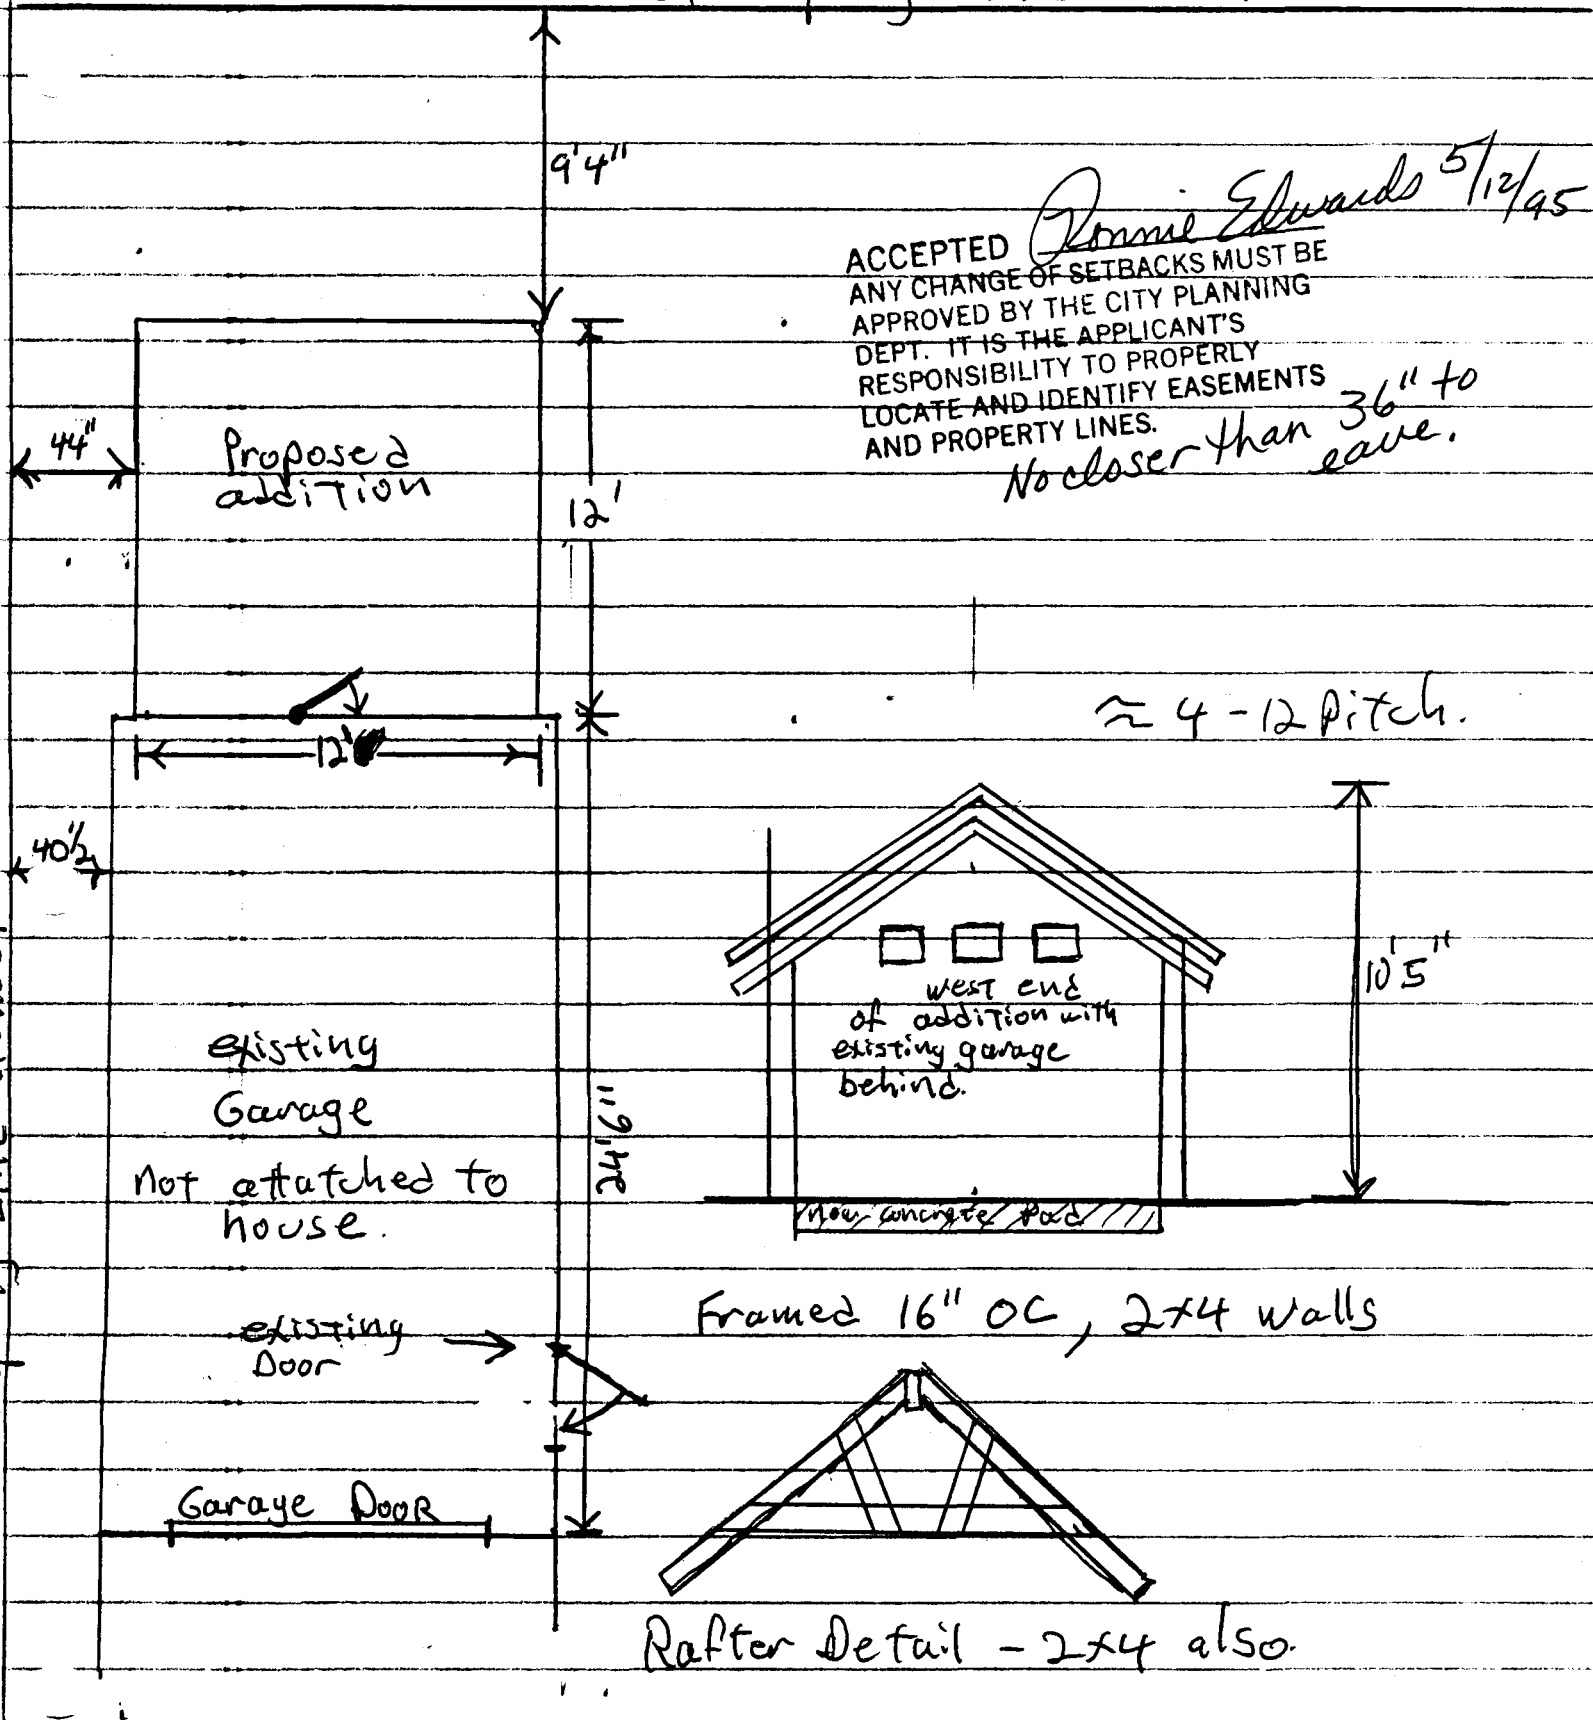 9'4"
Ronnie Edwards 5/12/95
ACCEPTED
ANY CHANGE OF SETBACKS MUST BE
APPROVED BY THE CITY PLANNING
DEPT. IT IS THE APPLICANT'S
RESPONSIBILITY TO PROPERLY
LOCATE AND IDENTIFY EASEMENTS
AND PROPERTY LINES.
No closer than 36" to
eave.
44"
Proposed
addition
12'
≈ 4-12 Pitch.
12'
40½
10'5"
west end
of addition with
existing garage
behind.
existing
Garage
not attatched to
house.
24'6"
new concrete Pad
Framed 16" OC, 2x4 walls
existing
Door
Garage Door
Rafter Detail - 2x4 also.